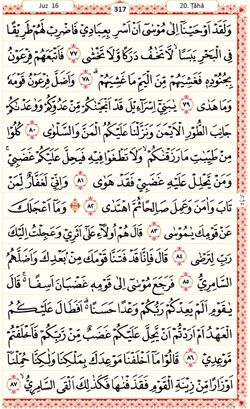 Juz 16 317 20. Ṭāhā
وَلَقَدْ اَوْحَيْنَآ اِلٰى مُوْسٰٓى اَنْ اَسْرِ بِعِبَادِيْ فَاضْرِبْ لَهُمْ طَرِيْقًا
فِي الْبَحْرِ يَبَسًا لَّا تَخٰفُ دَرَكًا وَّلَا تَخْشٰى ٧٧ فَاَتْبَعَهُمْ فِرْعَوْنُ
بِجُنُوْدِهٖ فَغَشِيَهُمْ مِّنَ الْيَمِّ مَا غَشِيَهُمْ ٧٨ وَاَضَلَّ فِرْعَوْنُ قَوْمَهٗ
وَمَا هَدٰى ٧٩ يٰبَنِيْٓ اِسْرَآءِيْلَ قَدْ اَنْجَيْنٰكُمْ مِّنْ عَدُوِّكُمْ وَوٰعَدْنٰكُمْ
جَانِبَ الطُّوْرِ الْاَيْمَنَ وَنَزَّلْنَا عَلَيْكُمُ الْمَنَّ وَالسَّلْوٰى ٨٠ كُلُوْا
مِنْ طَيِّبٰتِ مَا رَزَقْنٰكُمْ وَلَا تَطْغَوْا فِيْهِ فَيَحِلَّ عَلَيْكُمْ غَضَبِيْ
وَمَنْ يَّحْلِلْ عَلَيْهِ غَضَبِيْ فَقَدْ هَوٰى ٨١ وَاِنِّيْ لَغَفَّارٌ لِّمَنْ
تَابَ وَاٰمَنَ وَعَمِلَ صَالِحًا ثُمَّ اهْتَدٰى ٨٢ وَمَآ اَعْجَلَكَ
عَنْ قَوْمِكَ يٰمُوْسٰى ٨٣ قَالَ هُمْ اُولَآءِ عَلٰٓى اَثَرِيْ وَعَجِلْتُ اِلَيْكَ
رَبِّ لِتَرْضٰى ٨٤ قَالَ فَاِنَّا قَدْ فَتَنَّا قَوْمَكَ مِنْۢ بَعْدِكَ وَاَضَلَّهُمُ
السَّامِرِيُّ ٨٥ فَرَجَعَ مُوْسٰٓى اِلٰى قَوْمِهٖ غَضْبَانَ اَسِفًا قَالَ
يٰقَوْمِ اَلَمْ يَعِدْكُمْ رَبُّكُمْ وَعْدًا حَسَنًا اَفَطَالَ عَلَيْكُمُ
الْعَهْدُ اَمْ اَرَدْتُّمْ اَنْ يَّحِلَّ عَلَيْكُمْ غَضَبٌ مِّنْ رَّبِّكُمْ فَاَخْلَفْتُمْ
مَّوْعِدِيْ ٨٦ قَالُوْا مَآ اَخْلَفْنَا مَوْعِدَكَ بِمَلْكِنَا وَلٰكِنَّا حُمِّلْنَآ
اَوْزَارًا مِّنْ زِيْنَةِ الْقَوْمِ فَقَذَفْنٰهَا فَكَذٰلِكَ اَلْقَى السَّامِرِيُّ ٨٧